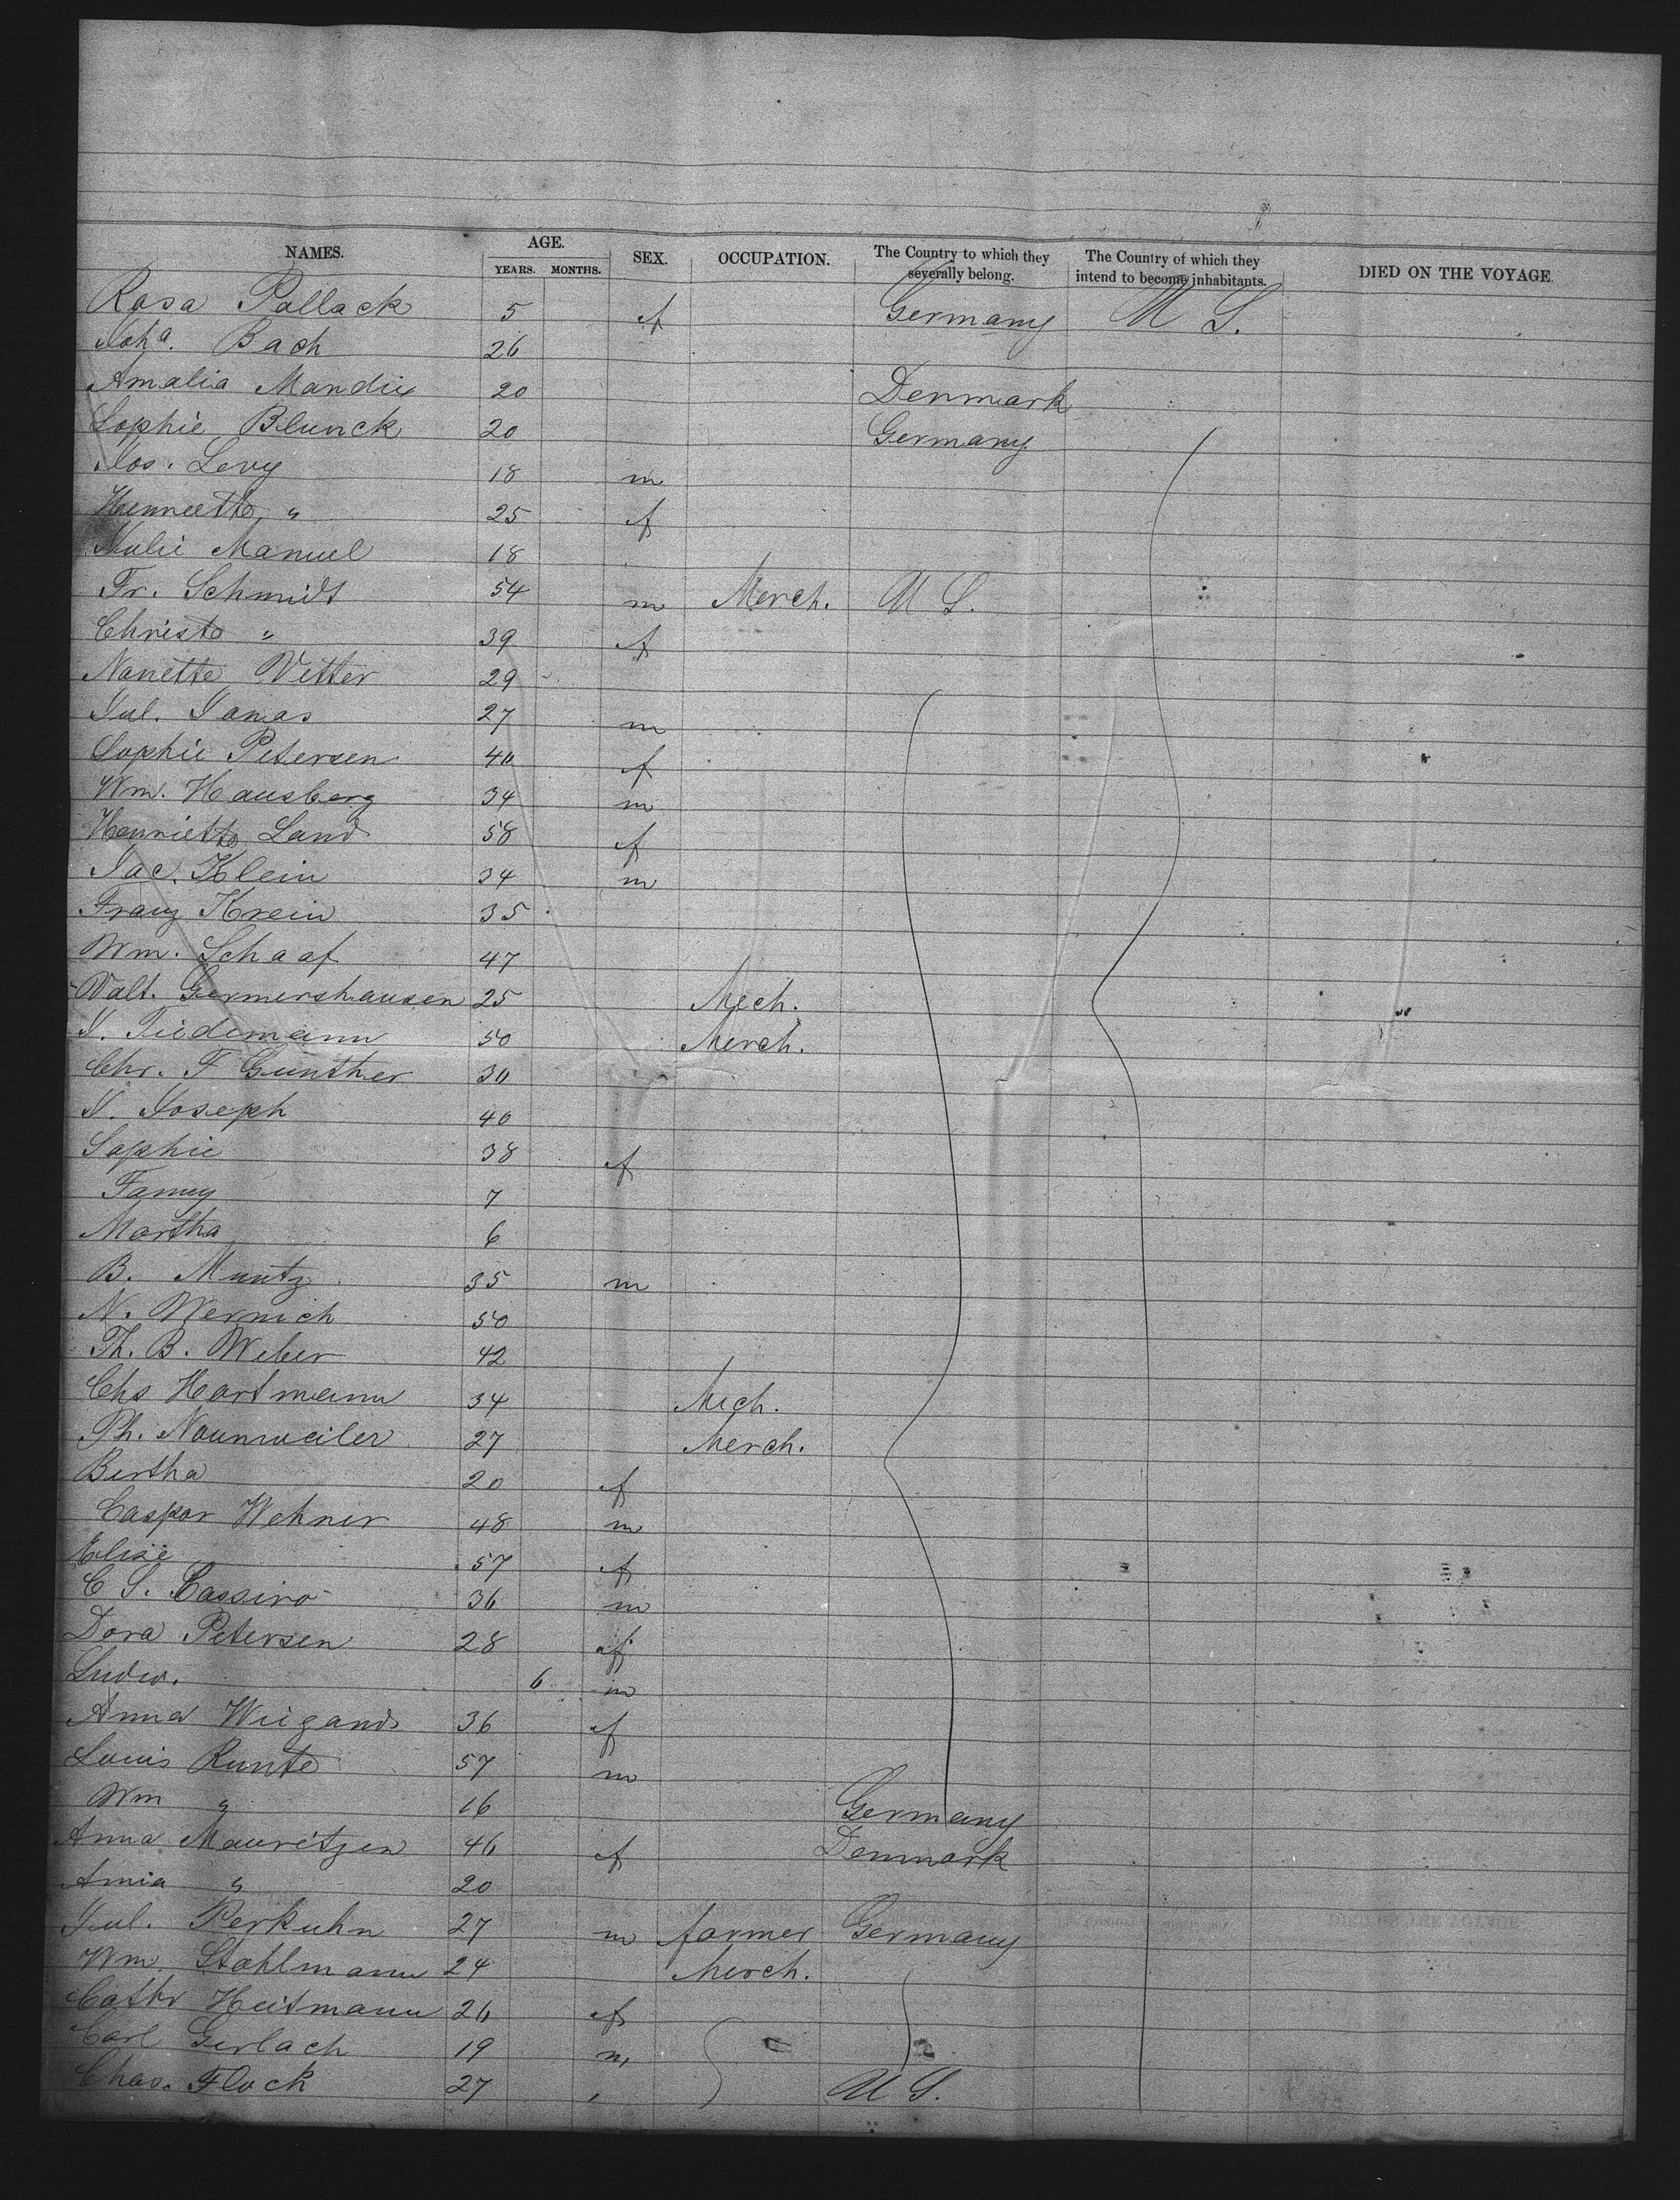 NAMES. AGE. SEX. OCCUPATION. The Country to which they severally belong. The Country of which they intend to become inhabitants. DIED ON THE VOYAGE.
YEARS. MONTHS.
Rosa Pollack 5 f Germany U S.
Joha. Bach 26
Amalia Mandix 20 Denmark
Sophie Blunck 20 Germany
Jos. Levy 18 m
Henriette " 25 f
Julie Manuel 18
Fr. Schmidt 54 m Merch. U S.
Christe " 39 f
Nanette Vetter 29
Jul. Jonas 27 m
Sophie Petersen 40 f
Wm. Hausberg 34 m
Henriette Land 58 f
Jac. Klein 34 m
Franz Krein 35
Wm. Schaaf 47
Valt. Germershausen 25 Mech.
J. Tiedemann 50 Merch.
Chr. F Gunther 30
J. Joseph 40
Sophie 38 f
Fanny 7
Martha 6
B. Muntz 35 m
N. Wernich 50
Th. B. Weber 42
Chs Hartmann 34 Mech.
Ph. Nounweiler 27 Merch.
Bertha 20 f
Caspar Wehner 48 m
Elise 57 f
C S. Cassiro 36 m
Dora Petersen 28 f
Ludw. 6 m
Anna Wiegand 36 f
Louis Runte 57 m
Wm " 16 Germany
Anna Mauritzen 46 f Denmark
Amia " 20
Jul. Perkuhn 27 m farmer Germany
Wm. Stahlmann 24 Merch.
Cathr Heitmann 26 f
Carl Gerlach 19 m
Chas. Flock 27 U S.